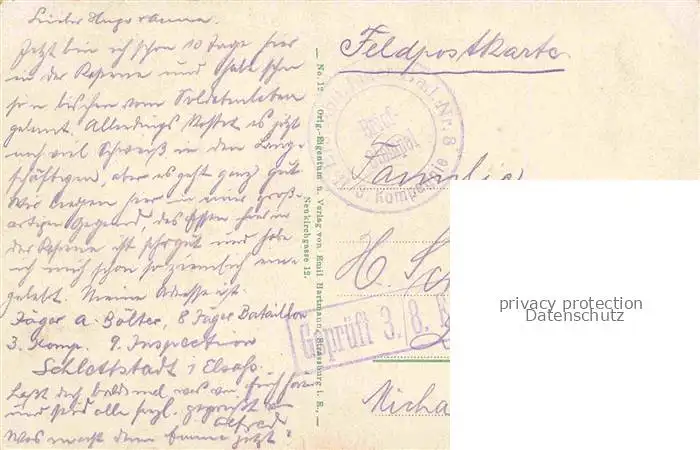 Lieber Hugo & Anna.
Jetzt bin ich schon 10 Tage hier
in der Kaserne und habe schon
so'n bischen vom Soldatenleben
gelernt. Allerdings kostet es jetzt
noch viel Schweiß in den
aber es geht ganz gut
Wir liegen hier in einer groß-
artigen Gegend, das Essen hier in
der Kaserne ist sehr gut und habe
ich mich schon so ziemlich ein-
gelebt. Meine Adresse ist.
Jäger A. Bölter, 8 Jäger Bataillon
3. Komp. 9. Inspection
Schlettstadt i Elsaß.
Laßt doch bald mal was von Euch hören
und seid alle herzl. gegrüßt v.
Alfred
Was macht denn Emma jetzt
No. 12 Orig.-Eigentum u. Verlag von Emil Hartmann, Strassburg i. E.,
Neukirchgasse 12.
Feldpostkarte
Nr. 8
Brief-
stempel
3. Kompagnie
Familie
H.
Geprüft 3./8.
privacy protection
Datenschutz